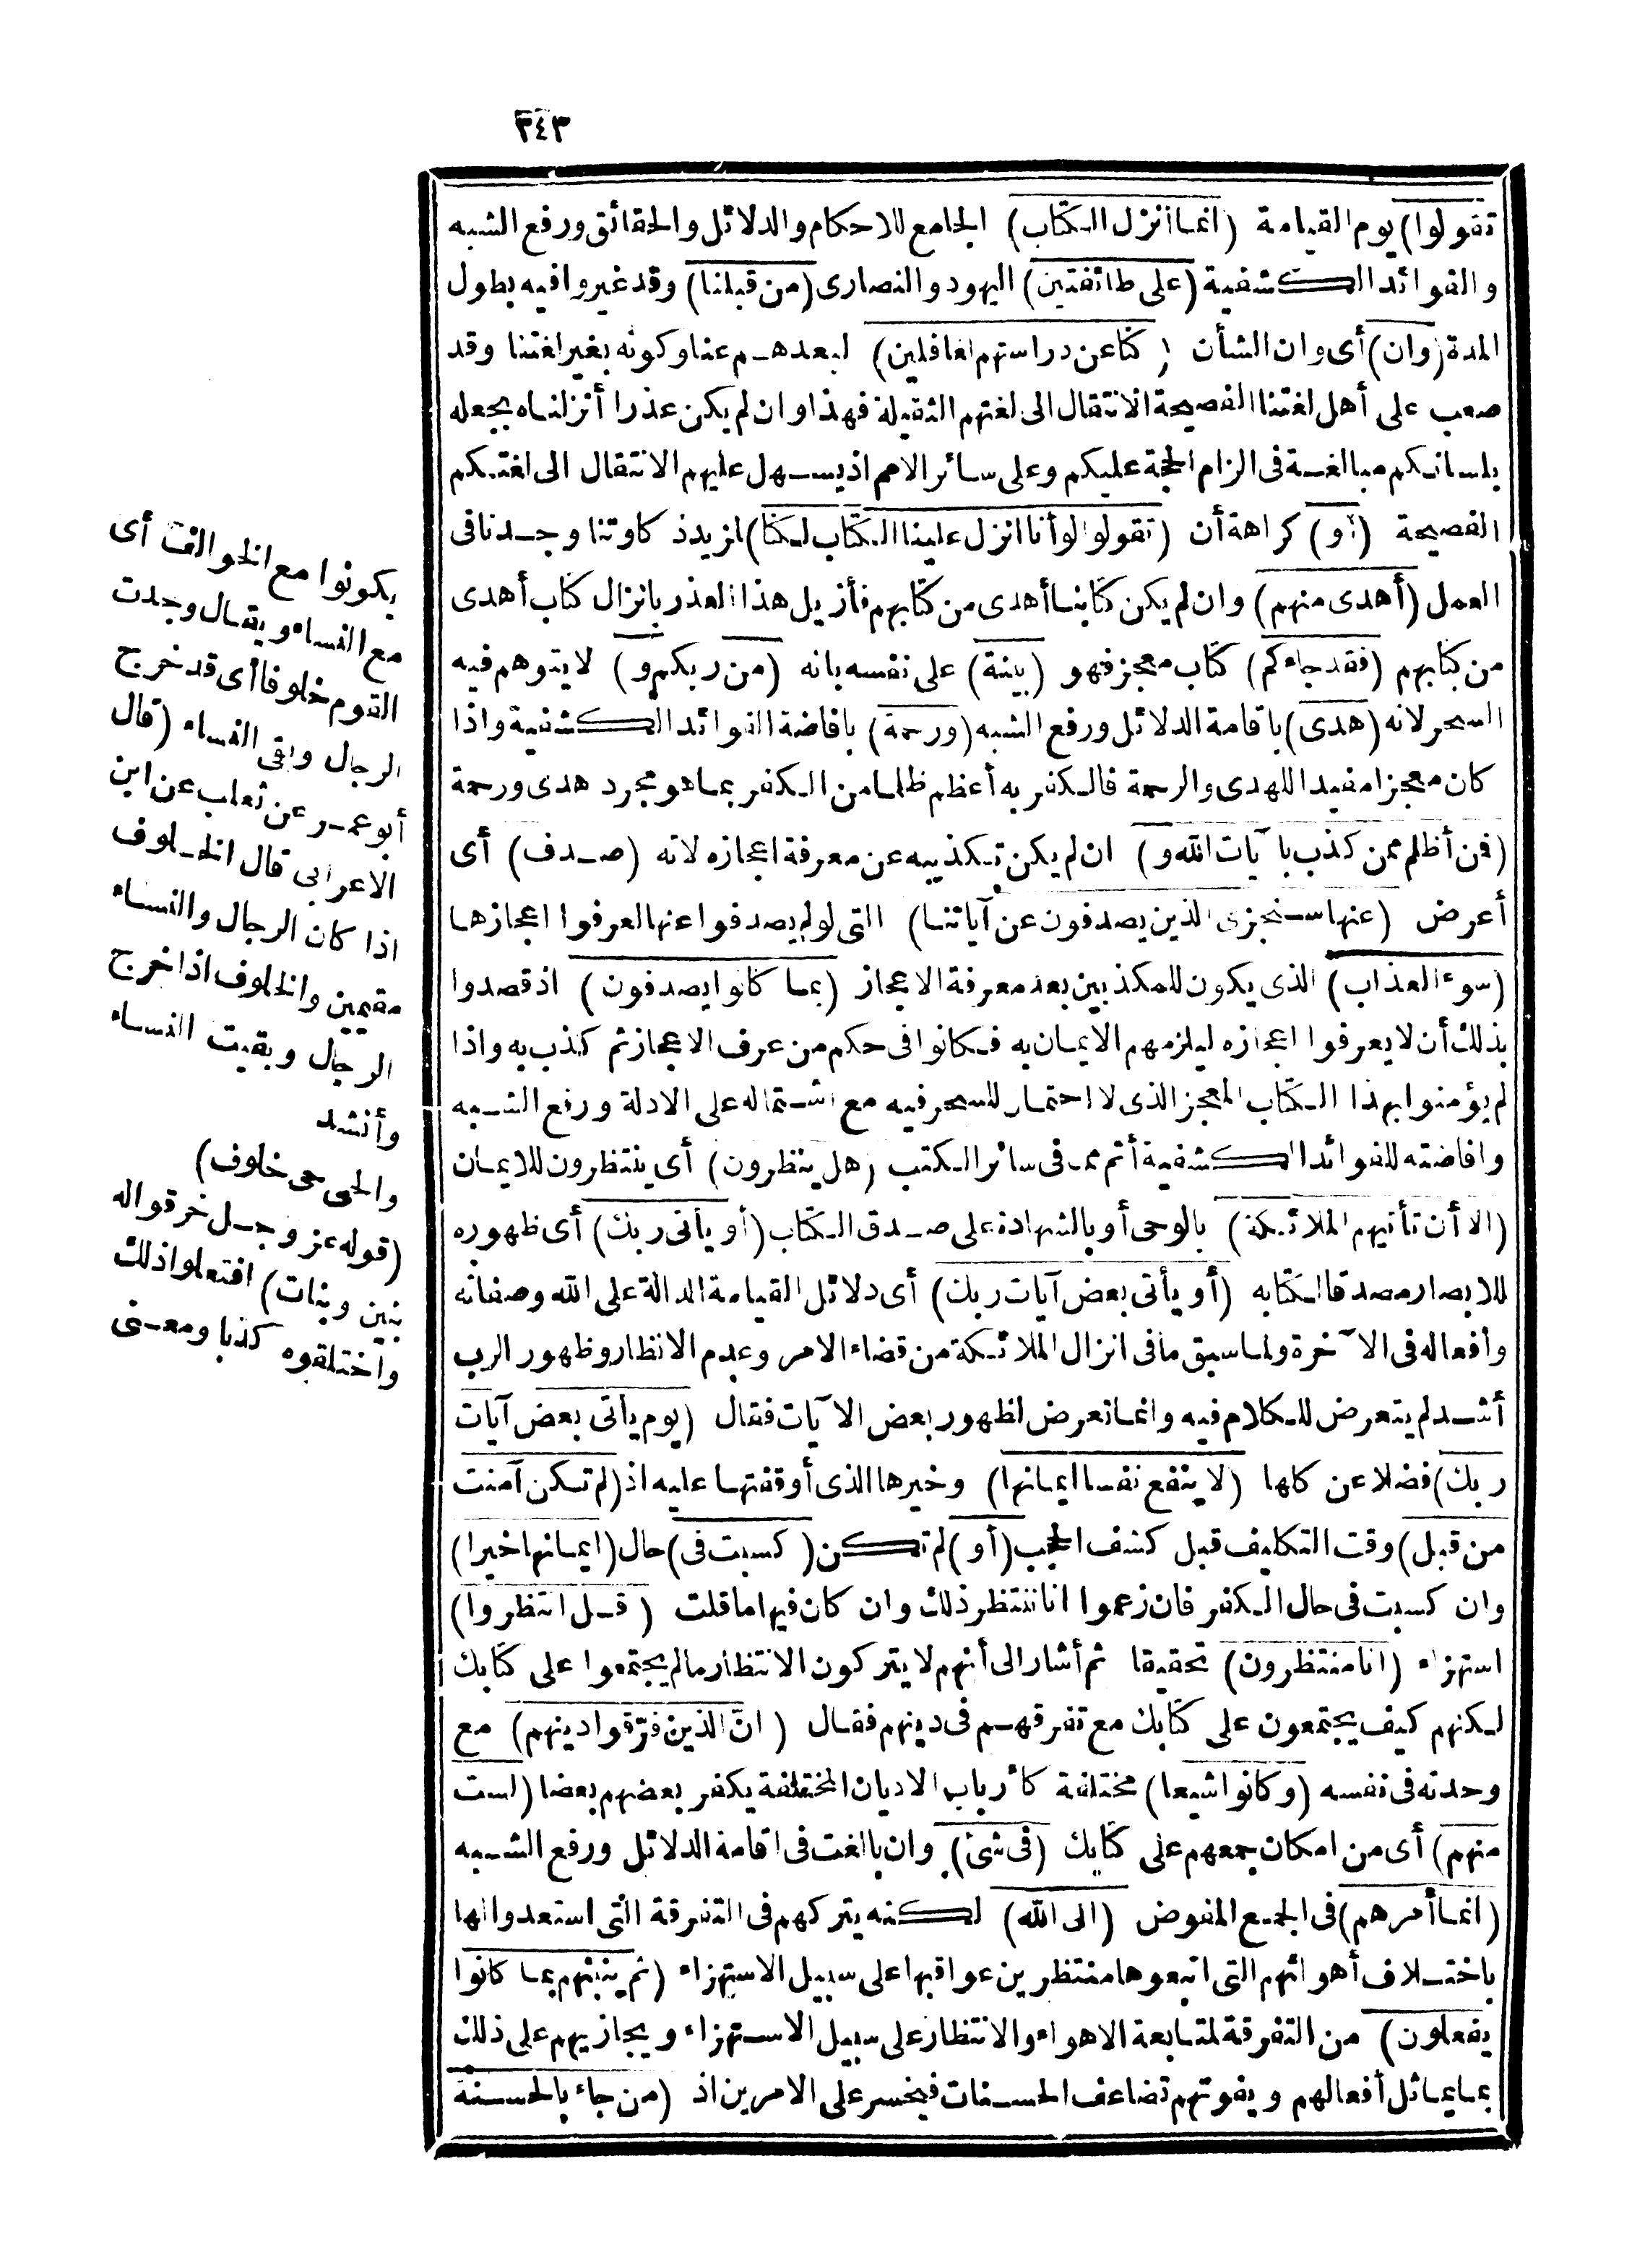 ٣٤٣
تقولوا) يوم القيامة (انما أنزل الكتاب) الجامع للاحكام والدلائل والحقائق ورفع الشبه
والفوائد الكشفية (على طائفتين) اليهود والنصارى (من قبلنا) وقد غيروا فيه بطول
المدة (وان) أى وان الشأن (كنا عن دراستهم لغافلين) لبعدهم عنا وكونه بغير لغتنا وقد
صعب على أهل لغتنا الفصيحة الانتقال الى لغتهم الثقيلة فهذا وان لم يكن عذرا أنزلناه بجعله
بلسانكم مبالغة فى الزام الحجة عليكم وعلى سائر الامم اذ يسهل عليهم الانتقال الى لغتكم
الفصيحة (أو) كراهة أن (تقولوا لو أنا انزل علينا الكتاب لكنا) لمزيد ذكاوتنا وجدنا فى
العمل (أهدى منهم) وان لم يكن كتابنا أهدى من كتابهم فأزيل هذا العذر بانزال كتاب أهدى
من كتابهم (فقد جاءكم) كتاب معجز فهو (بينة) على نفسه بانه (من ربكم و) لا يتوهم فيه
السحر لانه (هدى) باقامة الدلائل ورفع الشبه (ورحمة) بافاضة الفوائد الكشفية واذا
كان معجزا مفيدا للهدى والرحمة فالكفر به أعظم ظلما من الكفر بما هو مجرد هدى ورحمة
(فمن أظلم ممن كذب بآيات الله و) ان لم يكن تكذيبه عن معرفة اعجازه لانه (صدف) أى
أعرض (عنها سنجزى الذين يصدفون عن آياتنا) التى لو لم يصدفوا عنها لعرفوا اعجازها
(سوء العذاب) الذى يكون للمكذبين بعد معرفة الاعجاز (بما كانوا يصدفون) اذ قصدوا
بذلك أن لا يعرفوا اعجازه ليلزمهم الايمان به فكانوا فى حكم من عرف الاعجاز ثم كذب به واذا
لم يؤمنوا بهذا الكتاب المعجز الذى لا احتمار للسحر فيه مع اشتماله على الادلة ورفع الشبه
وافاضته للفوائد الكشفية أتم مما فى سائر الكتب (هل ينظرون) أى ينتظرون للايمان
(الا أن تأتيهم الملائكة) بالوحى أو بالشهادة على صدق الكتاب (أو يأتى ربك) أى ظهوره
للابصار مصدقا لكتابه (أو يأتى بعض آيات ربك) أى دلائل القيامة الدالة على الله وصفاته
وأفعاله فى الآخرة ولما سبق ما فى انزال الملائكة من قضاء الامر وعدم الانظار وظهور الرب
أشد لم يتعرض للكلام فيه وانما تعرض لظهور بعض الآيات فقال (يوم يأتى بعض آيات
ربك) فضلا عن كلها (لا ينفع نفسا ايمانها) وخيرها الذى أوقفتها عليه اذ (لم تكن آمنت
من قبل) وقت التكليف قبل كشف الحجب (أو) لم تكن (كسبت فى) حال (ايمانها خيرا)
وان كسبت فى حال الكفر فان زعموا انا ننتظر ذلك وان كان فيها ما قلت (قل انتظروا)
استهزاء (انا منتظرون) تحقيقا ثم أشار الى أنهم لا يتركون الانتظار ما لم يجتمعوا على كتابك
لكنهم كيف يجتمعون على كتابك مع تفرقهم فى دينهم فقال (انّ الذين فرّقوا دينهم) مع
وحدته فى نفسه (وكانوا شيعا) مختلفة كأرباب الاديان المختلفة يكفر بعضهم بعضا (لست
منهم) أى من امكان جمعهم على كتابك (فى شئ) وان بالغت فى اقامة الدلائل ورفع الشبه
(انما أمرهم) فى الجمع المفوض (الى الله) لكنه يتركهم فى التفرقة التى استعدوا لها
باختلاف أهوائهم التى اتبعوها منتظرين عواقبها على سبيل الاستهزاء (ثم ينبئهم بما كانوا
يفعلون) من التفرقة لمتابعة الاهواء والانتظار على سبيل الاستهزاء ويجازيهم على ذلك
بما يماثل أفعالهم ويفوتهم تضاعف الحسنات فيخسر على الامرين اذ (من جاء بالحسنة
يكونوا مع الخوالف أى
مع النساء ويقال وجدت
القوم خلوفا أى قد خرج
الرجال وبقى النساء (قال
أبو عمر عن ثعلب عن ابن
الاعرابى قال الخلوف
اذا كان الرجال والنساء
مقيمين والخلوف اذا خرج
الرجال وبقيت النساء
وأنشد
والحى حى خلوف)
(قوله عز وجل خرقوا له
بنين وبنات) افتعلوا ذلك
واختلقوه كذبا ومعنى